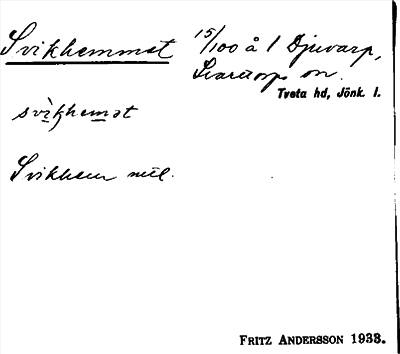 Svikhemmet 15/100 å 1 Djuvarp,
Barnarps sn.
Tveta hd, Jönk. l.
svìkhemət
Svikhem
FRITZ ANDERSSON 1933.